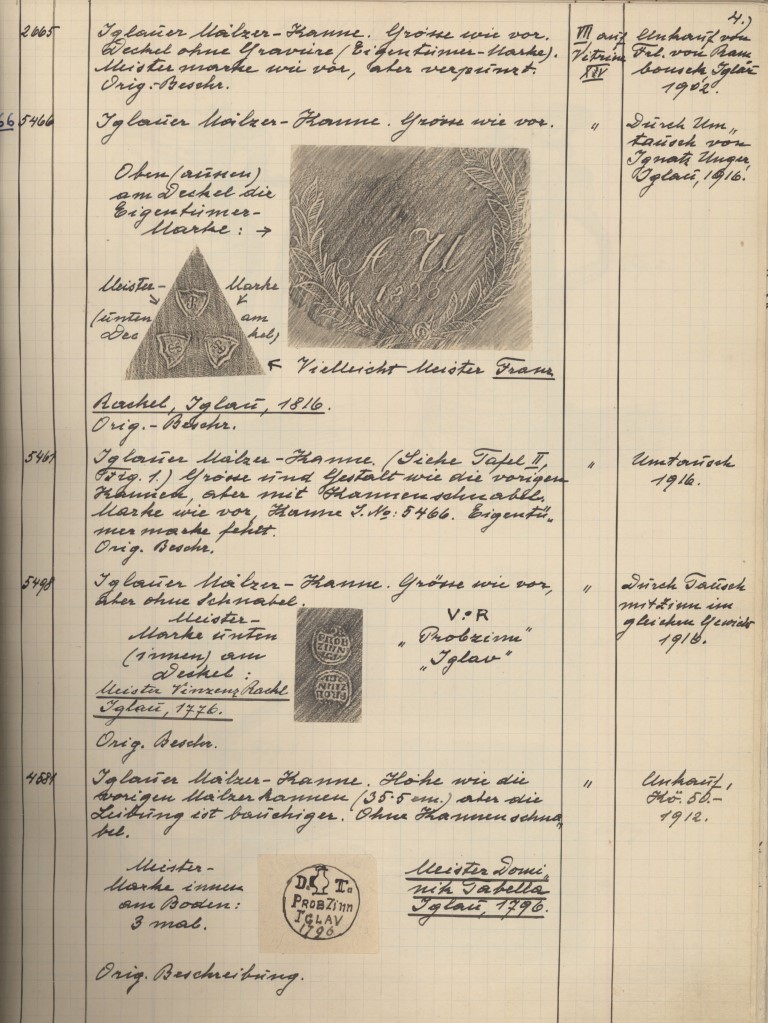 4.)
2665
Iglauer Mälzer-Kanne. Grösse wie vor.
Deckel ohne Gravüre (Eigentümer-Marke).
Meistermarke wie vor, aber verpunzt.
Orig.-Beschr.
VII auf
Vitrine
XIV
Ankauf von
Frl. von Ram
bousek, Iglau
1902.
66
5466
Iglauer Mälzer-Kanne. Grösse wie vor.
"
Durch Um„
tausch von
Ignatz Unger,
Iglau, 1916.
Oben (aussen)
am Deckel die
Eigentümer-
Marke : →
A U
Meister- Marke
(unten am
Deckel)
← Vielleicht Meister Franz
Rachel, Iglau, 1816.
Orig.- Beschr.
5461
Iglauer Mälzer-Kanne. (Siehe Tafel II,
Fig. 1.) Grösse und Gestalt wie die vorigen
Kannen, aber mit Kannenschnabel.
Marke wie vor, Kanne J. No: 5466. Eigentü„
mermarke fehlt.
Orig. Beschr.
"
Umtausch
1916.
5498
Iglauer Mälzer-Kanne. Grösse wie vor,
aber ohne Schnabel.
"
Durch Tausch
mit Zinn im
gleichen Gewicht
1916.
Meister-
Marke unten
(innen) am
Deckel :
Meister Vinzenz Rachl
Iglau, 1776.
PROB
ZINN
V•R
„Probzinn"
„Iglav"
Orig. Beschr.
4581
Iglauer Mälzer-Kanne. Höhe wie die
vorigen Mälzerkannen (35·5 cm.) aber die
Leibung ist bauchiger. Ohne Kannenschna„
bel.
"
Ankauf,
Kö. 50.-
1912.
Meister-
Marke innen
am Boden:
3 mal.
D. T.
PROBZINN
IGLAV
1796
Meister Domi„
nik Tabella
Iglau, 1796.
Orig. Beschreibung.